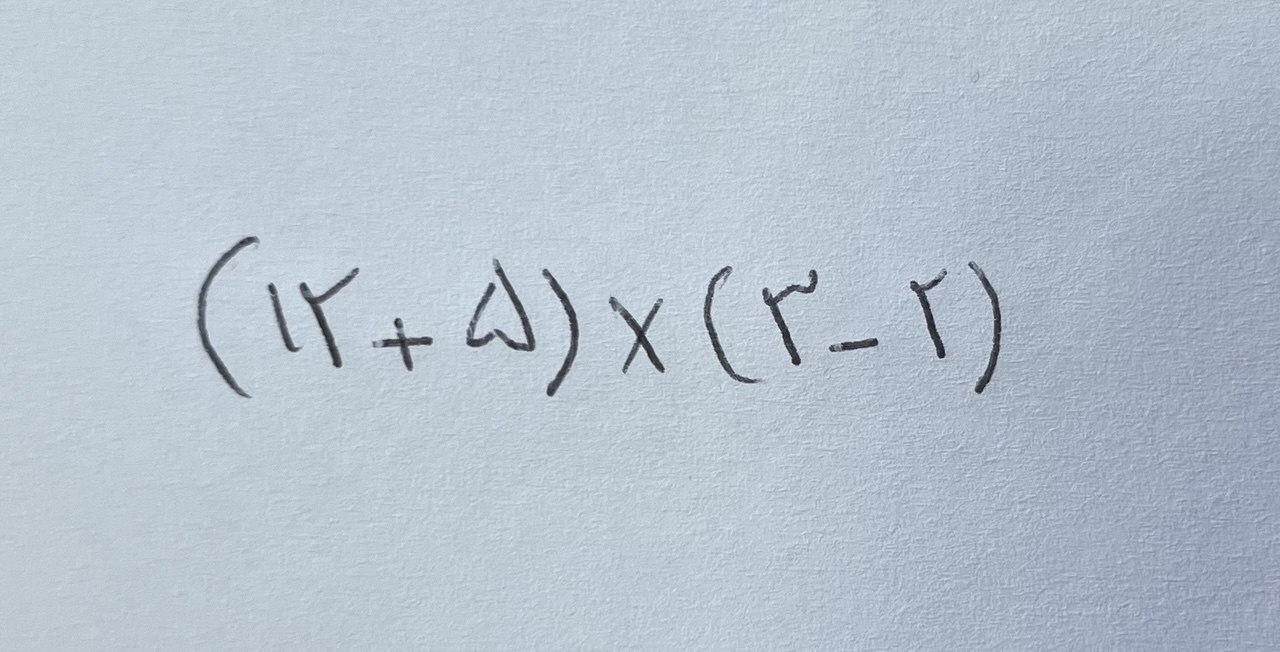 (۱۲+۵)×(۳-۲)